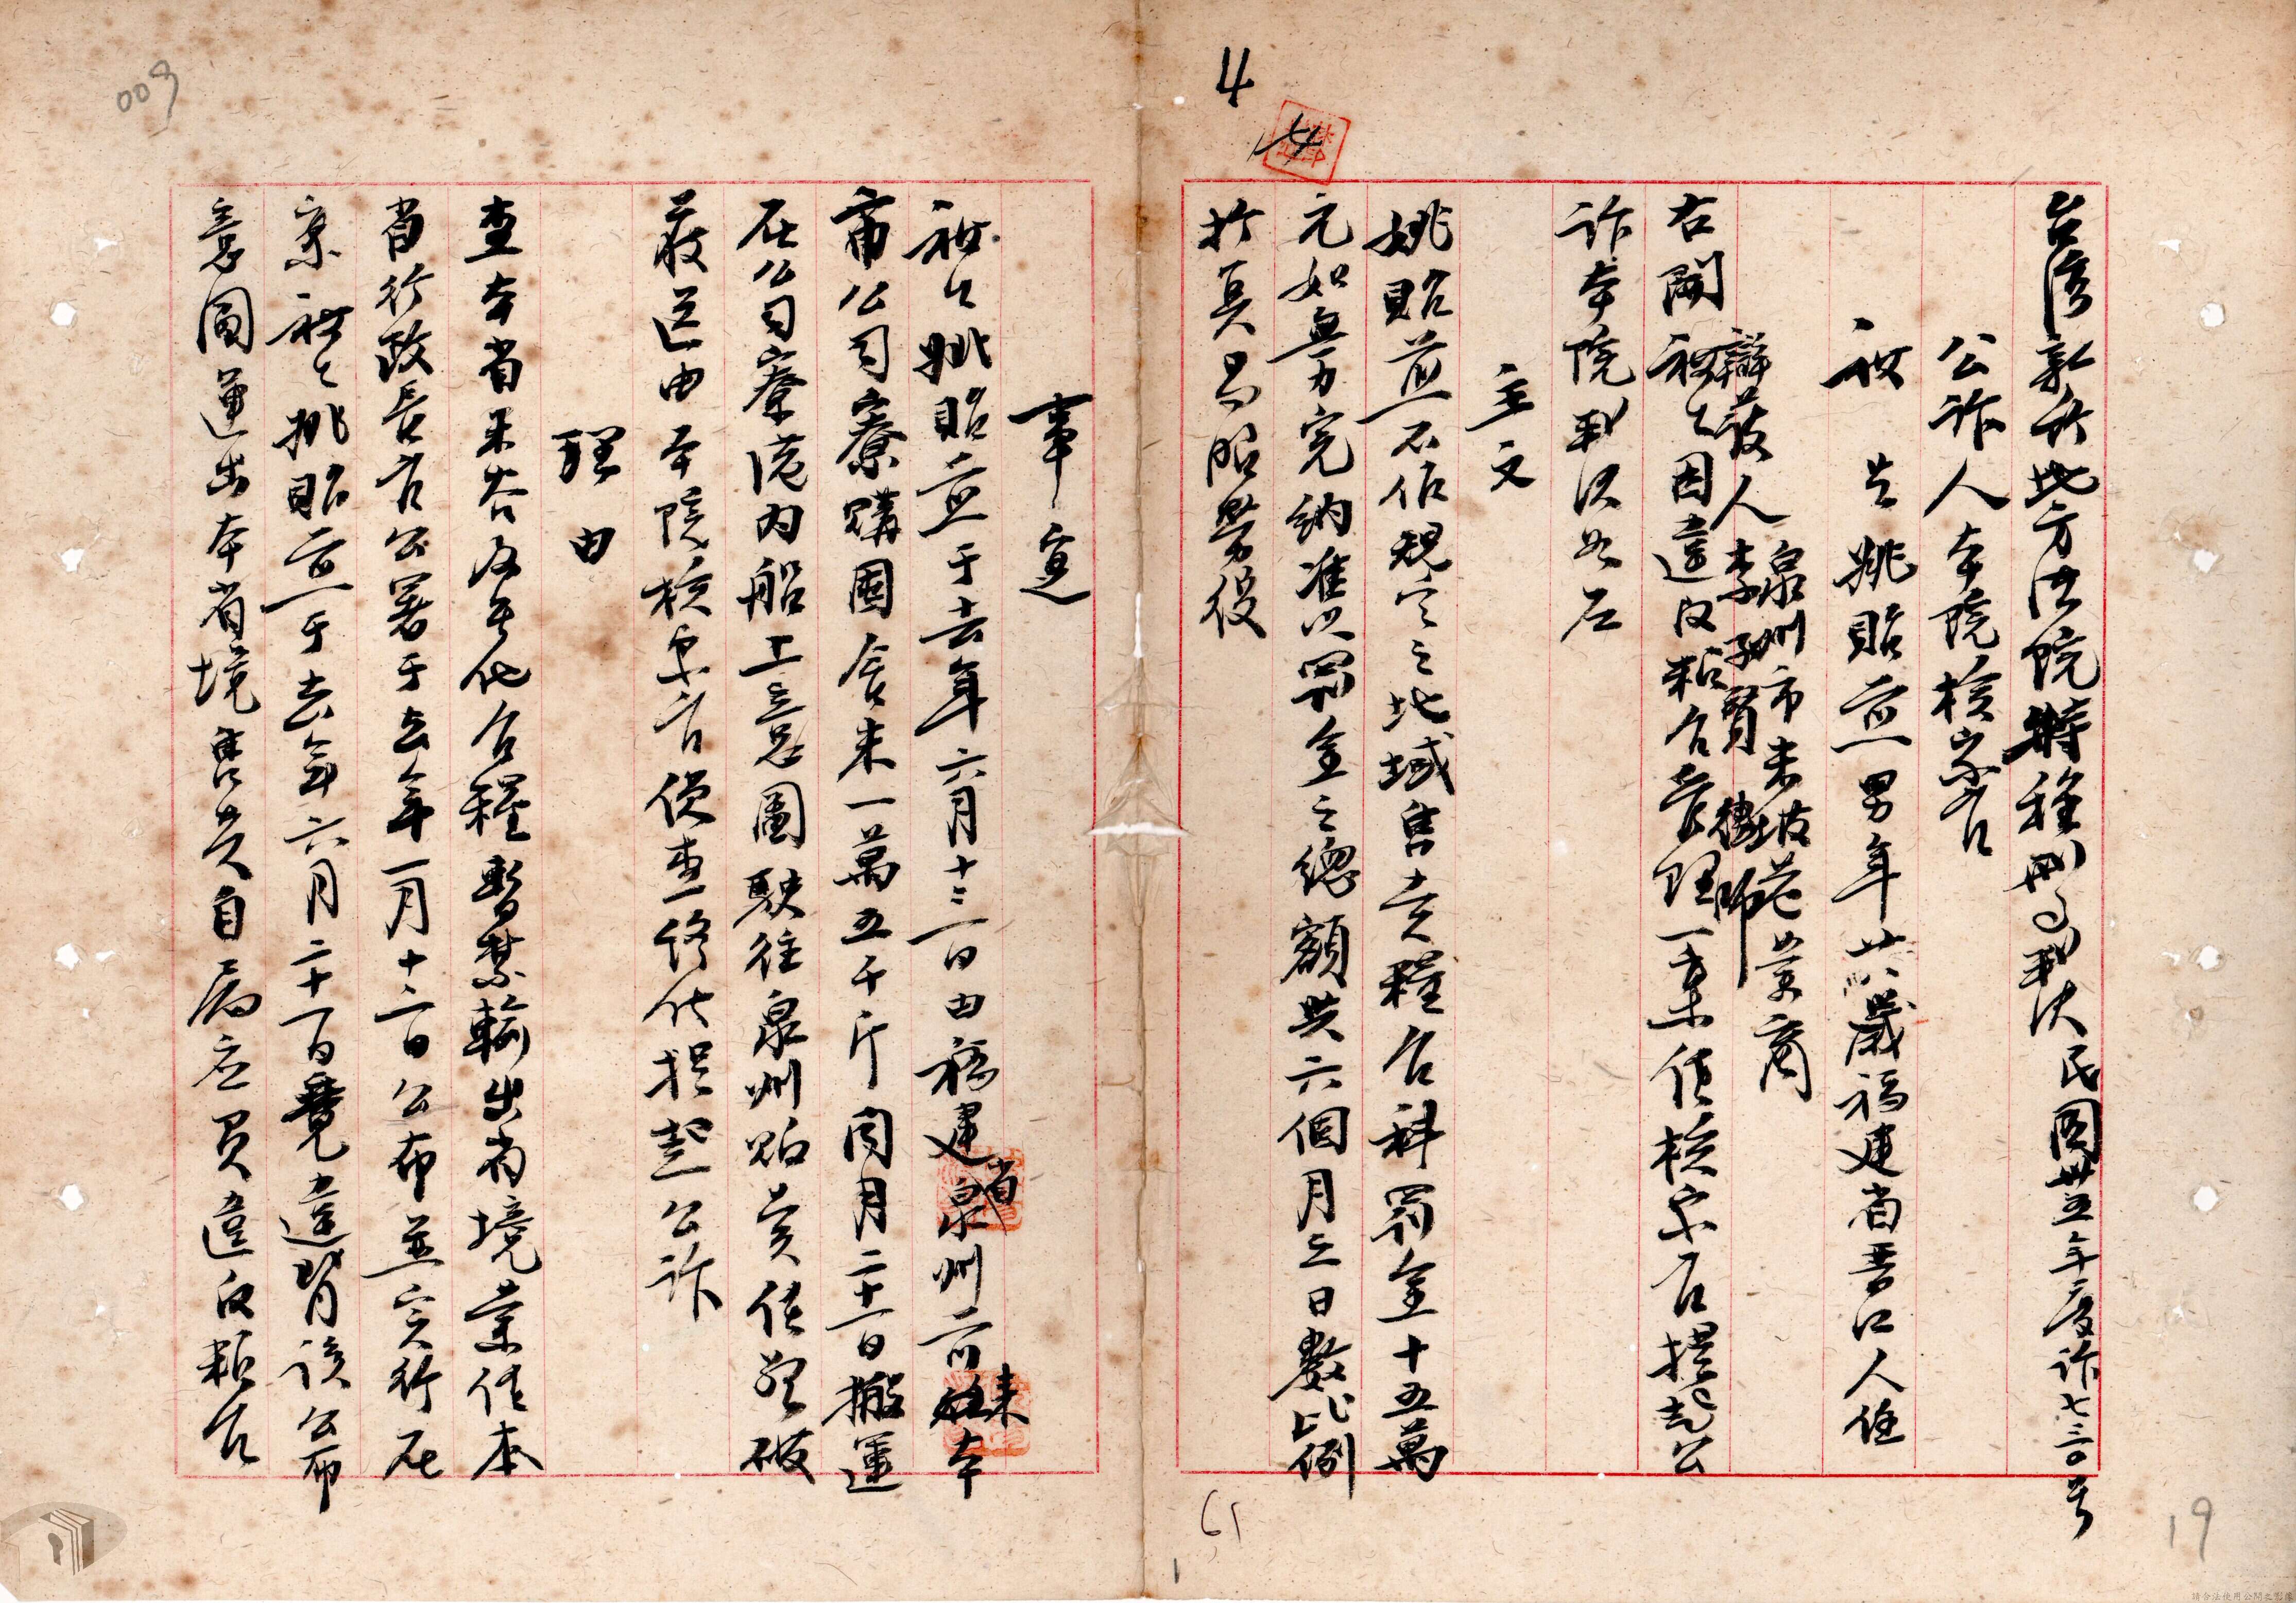 4
台湾新竹地方法院特種刑事判決民國卅五年度訴七三〇号
公訴人本院檢察官
被告姚貽並男年廿八歲福建省晋江人住
泉州市来坡巷業商
辯護人李子賢律師
右開被告因違反粮台管理一案經檢察官提起公
訴本院判決如左
主文
姚貽並不依規定之地域售賣糧台科罰金十五萬
元如無力完納准以罰金之總額與六個月之日數比例
折算易服勞役
事實
被告姚貽並于去年六月十三日由福建省泉州市來本
市公司寮購囤食米一萬五千斤同月二十一日搬運
在公司寮港內船上意圖駛往泉州販賣經警破
獲送由本院檢察官偵查終代提起公訴
理由
查本省米谷及其他台糧暫禁輸出省境業經本
省行政長官公署于去年一月十二日公布並實行在
案被告姚貽並于去年六月二十一日竟違背該公布
意圖運出本省境售賣自屬應負違反粮台
009
61
19
1